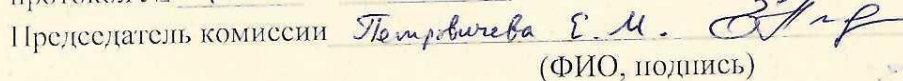 протокол №
Председатель комиссии Петровичева Е. М.
(ФИО, подпись)